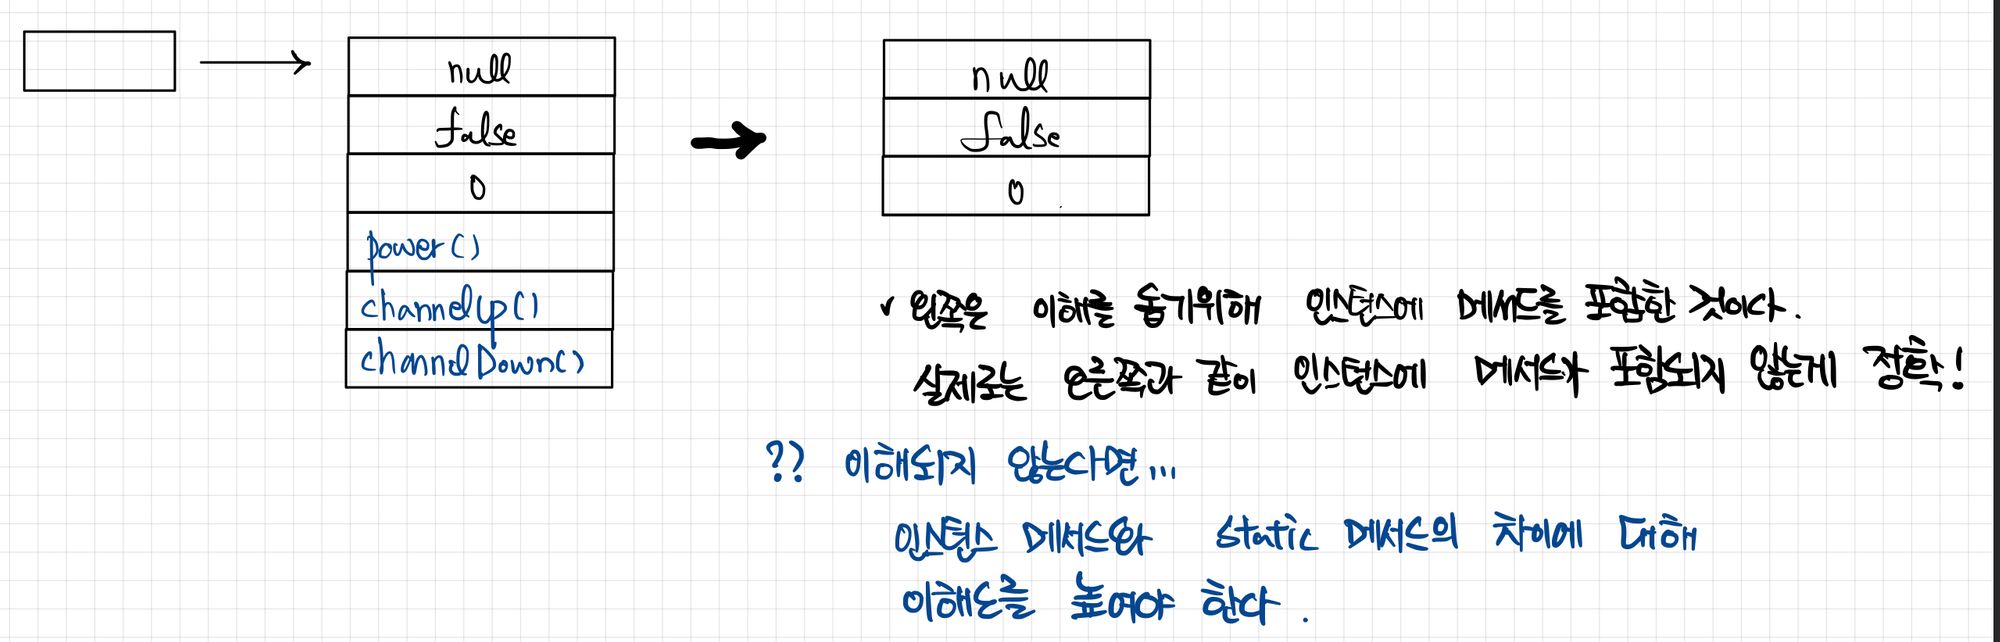 null
false
0
power()
channelUp()
channelDown()
null
false
0
✓ 왼쪽은 이해를 돕기위해 인스턴스에 메서드를 포함한 것이다.
실제로는 오른쪽과 같이 인스턴스에 메서드가 포함되지 않는게 정확!
?? 이해되지 않는다면...
인스턴스 메서드와 static 메서드의 차이에 대해
이해도를 높여야 한다.